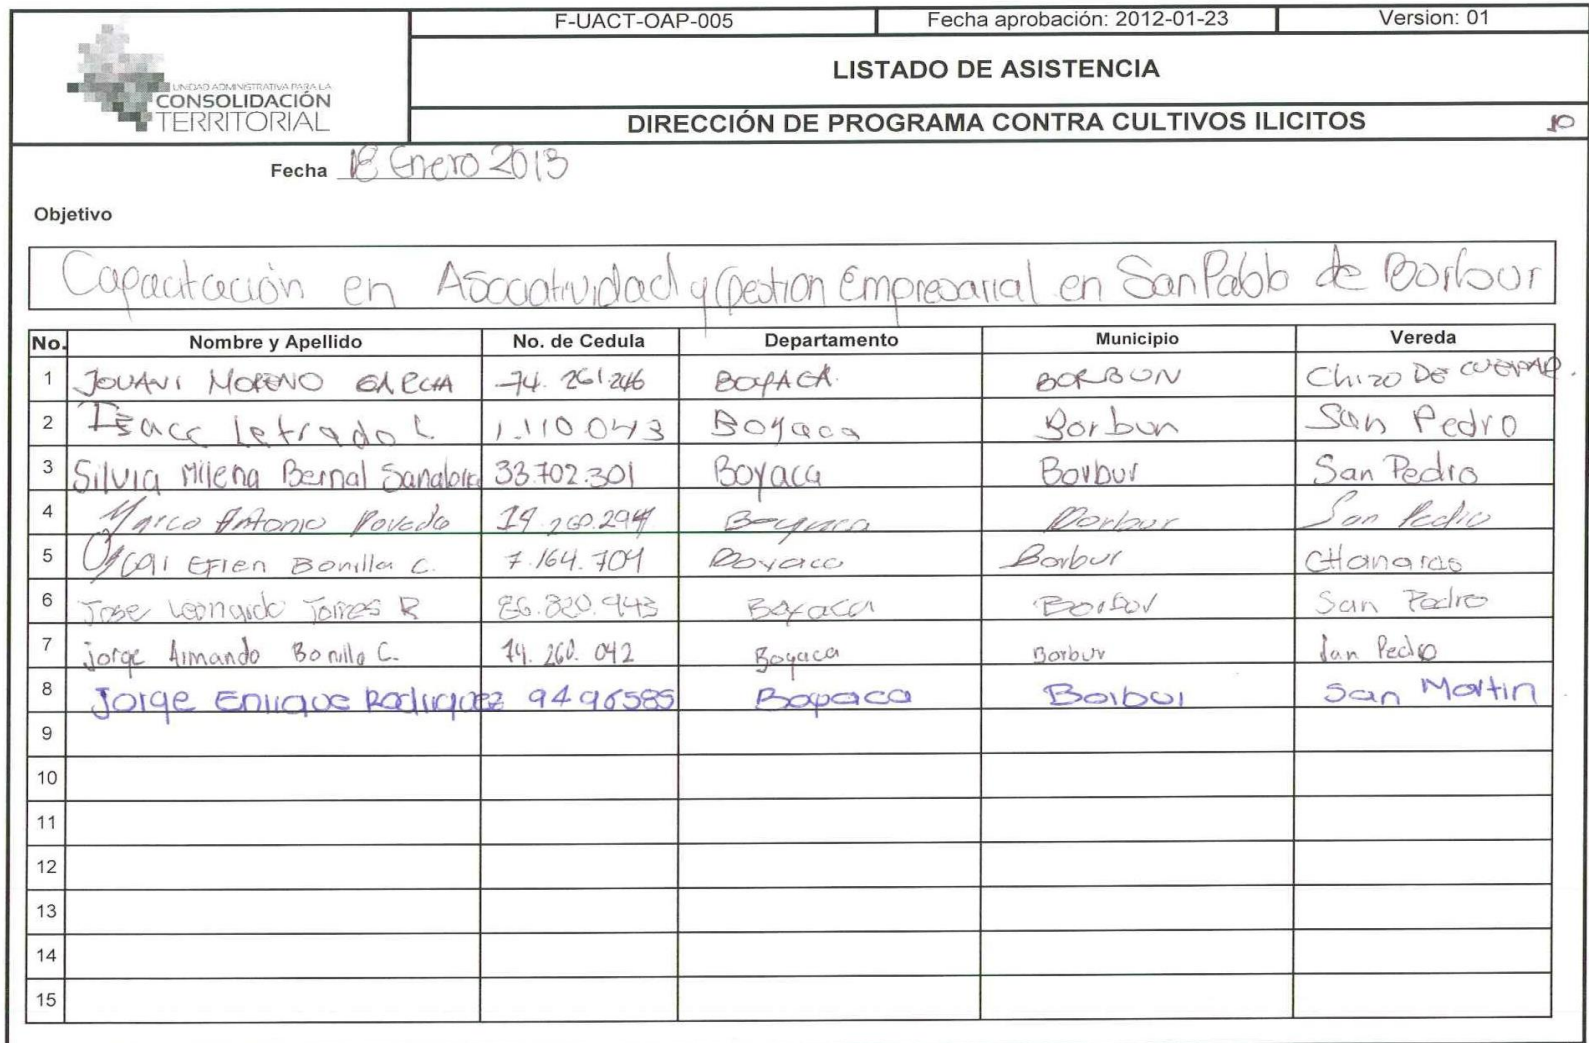 F-UACT-OAP-005 Fecha aprobación: 2012-01-23 Version: 01
UNIDAD ADMINISTRATIVA PARA LA
CONSOLIDACIÓN
TERRITORIAL
LISTADO DE ASISTENCIA
DIRECCIÓN DE PROGRAMA CONTRA CULTIVOS ILICITOS 10
Fecha 18 Enero 2013
Objetivo
Capacitación en Asociatividad y Gestion Empresarial en San Pablo de Borbur
No. Nombre y Apellido No. de Cedula Departamento Municipio Vereda
1 JOVANI MORENO GARCIA 74.261.246 BOYACA BORBUN Chizo DE
2 Isacc Letrado L 1.110.043 Boyaca Borbun San Pedro
3 Silvia Milena Bernal 33.702.301 Boyaca Borbur San Pedro
4 Marco Antonio Poveda Boyaca Borbur San Pedro
5 Oscar EFren Bonilla C. 7.164.704 Boyaca Borbur
6 Jose Leonardo Torres R Boyaca Borbur San Pedro
7 jorge Armando Bonilla C. 74.260.042 Boyaca Borbur San Pedro
8 Jorge Enrique Rodriguez 9496585 Boyaca Borbur San Martin
9
10
11
12
13
14
15